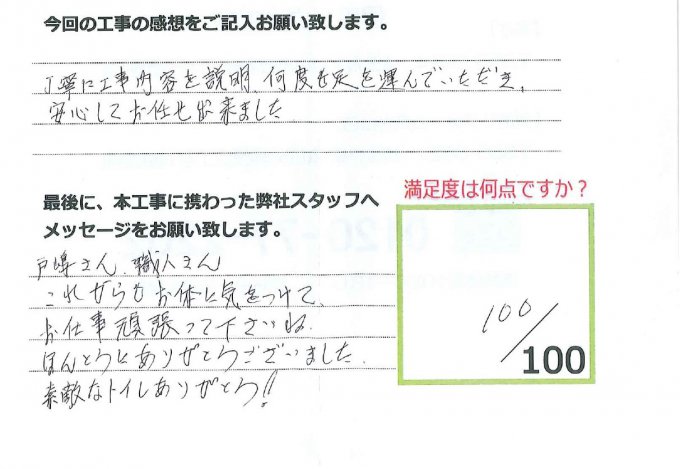 今回の工事の感想をご記入お願い致します。
丁寧に工事内容を説明、何度も足を運んでいただき、
安心してお任せ出来ました
最後に、本工事に携わった弊社スタッフへ
メッセージをお願い致します。
満足度は何点ですか？
さん、職人さん
これからもお体に気をつけて、
お仕事頑張って下さいね。
ほんとうにありがとうございました。
素敵なトイレありがとう!!
100/100